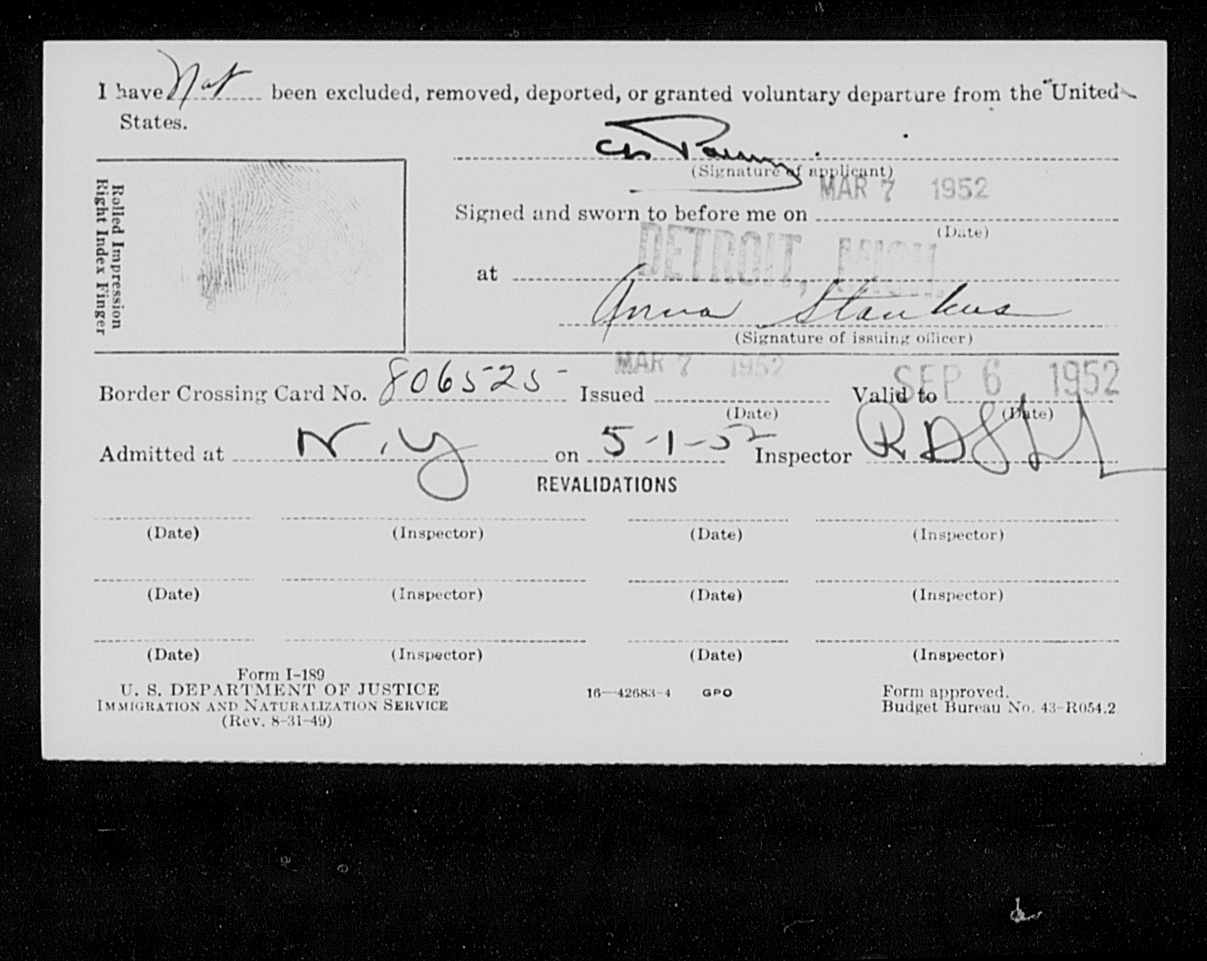 I have Not been excluded, removed, deported, or granted voluntary departure from the United
States.
(Signature of applicant)
MAR 7 1952
Signed and sworn to before me on
(Date)
DETROIT, MICH.
at
Anna Stankus
(Signature of issuing officer)
Rolled Impression
Right Index Finger
MAR 7 1952 SEP 6 1952
Border Crossing Card No. 806525 Issued Valid to
(Date) (Date)
Admitted at N.Y on 5-1-52 Inspector
REVALIDATIONS
(Date) (Inspector) (Date) (Inspector)
(Date) (Inspector) (Date) (Inspector)
(Date) (Inspector) (Date) (Inspector)
Form I-189
U. S. DEPARTMENT OF JUSTICE 16—42683-4 GPO Form approved.
IMMIGRATION AND NATURALIZATION SERVICE Budget Bureau No. 43-R054.2
(Rev. 8-31-49)